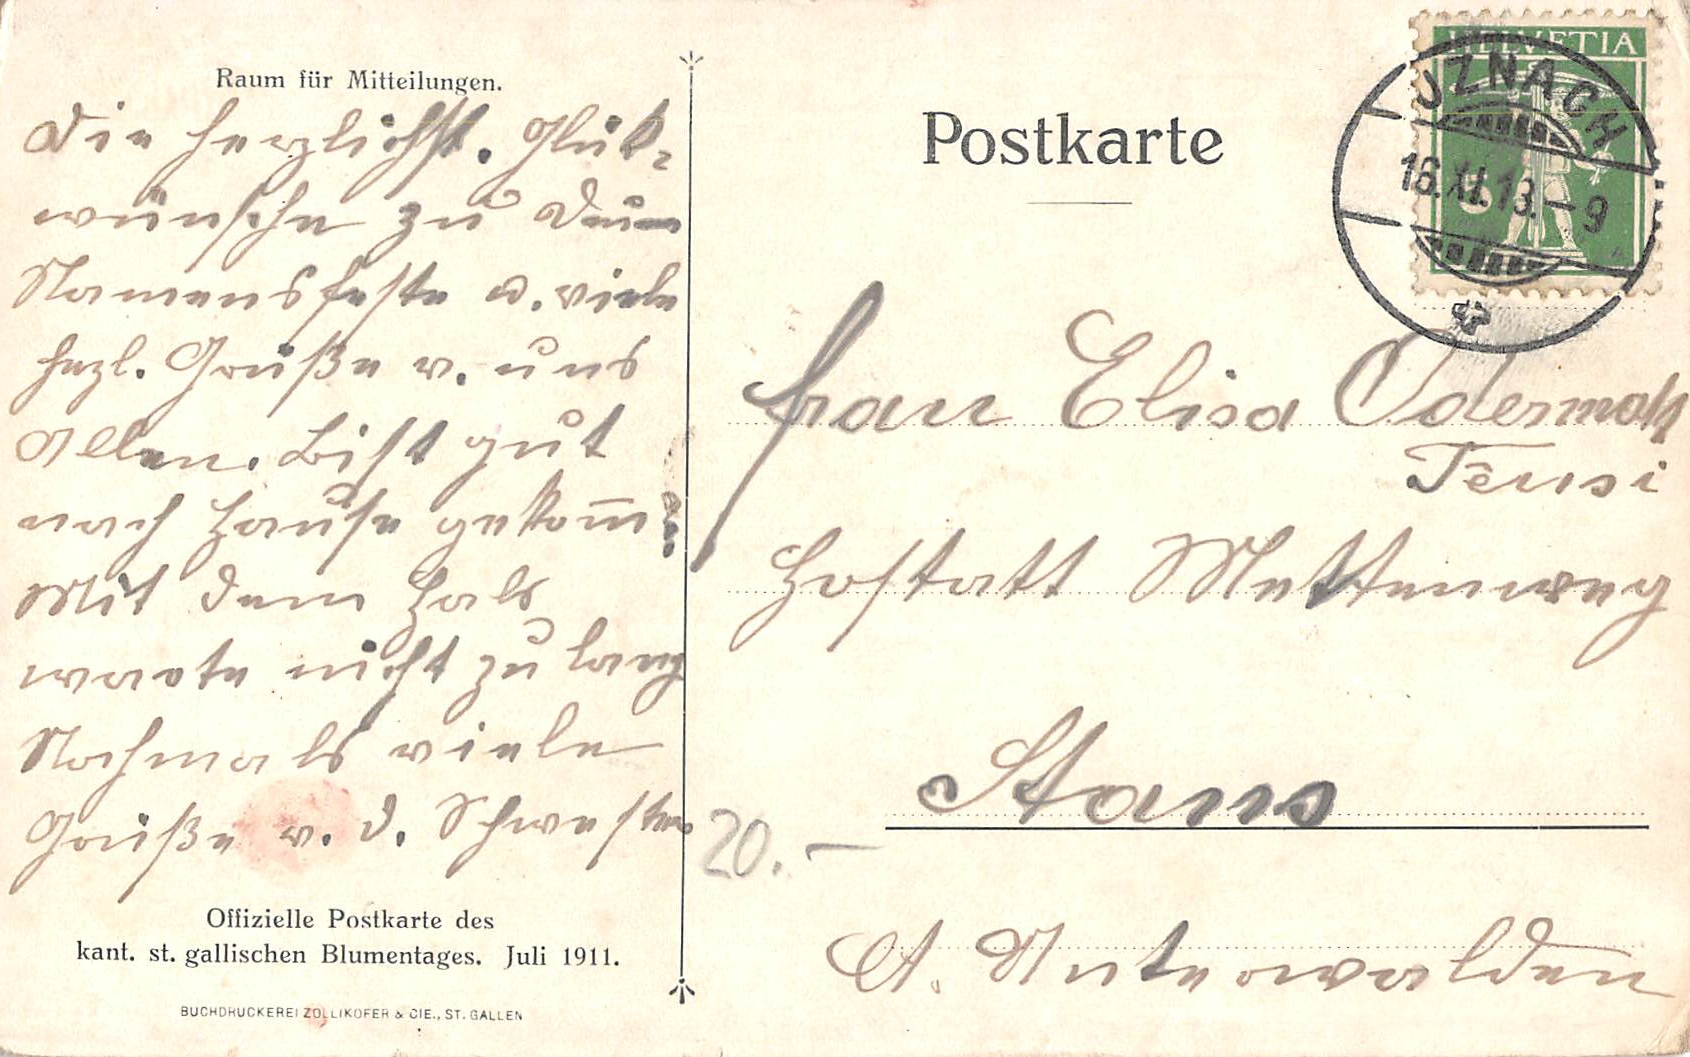 Raum für Mitteilungen.
Die herzlichst. Glük-
wünsche zu Dein
Namensfeste u. viele
hezl. Grüße v. uns
Allen. Bist gut
nach Hause gekom̅?
Mit dem Hals
warte nicht zu lang
Nochmals viele
Grüße v. d. Schwester
Offizielle Postkarte des
kant. st. gallischen Blumentages. Juli 1911.
BUCHDRUCKEREI ZOLLIKOFER & CIE., ST. GALLEN
Postkarte
HELVETIA
5
UZNACH
16.XI.13.-9
Frau Elisa Odermatt
Hostatt Mettenweg
Stans
20.-
Ct. Unterwalden